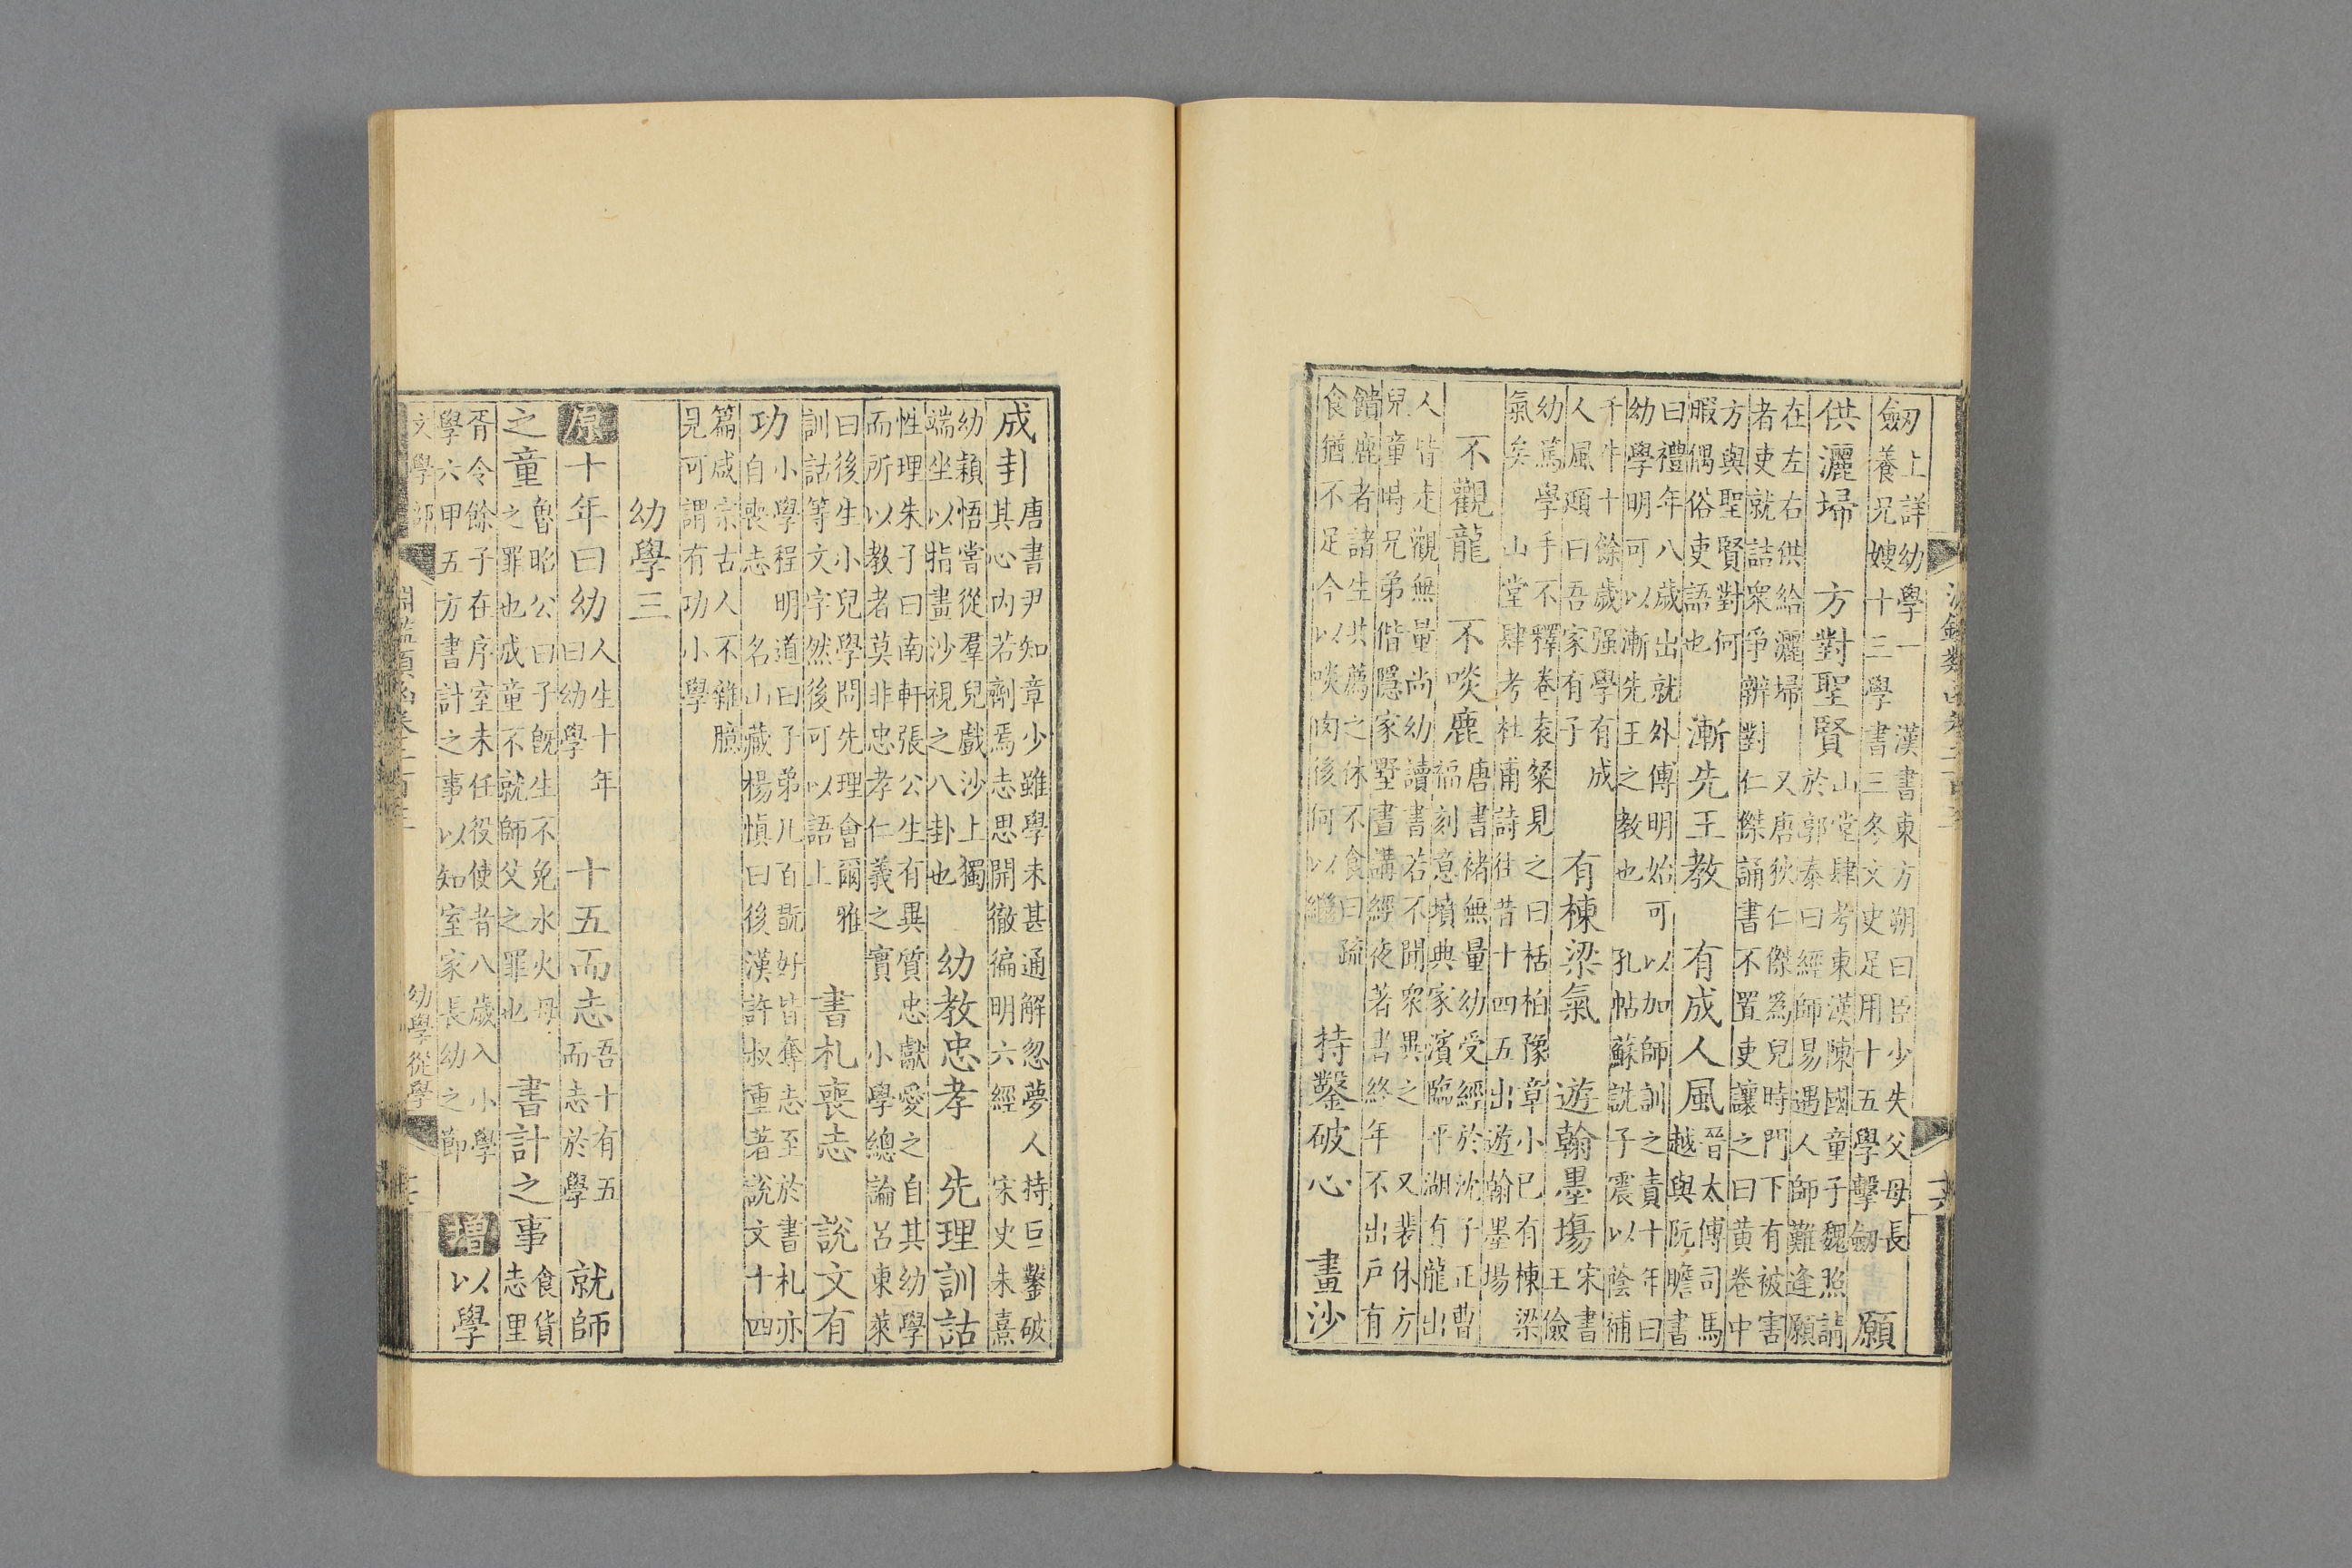 劒
上詳幼學一 漢書東方朔曰臣少失父母長
養兄嫂十三學書三冬文史足用十五學擊劒
願
供灑埽 方對聖賢
山堂肆考東漢陳國童子魏照請
於郭泰曰經師易遇人師難逢願
在左右供給灑埽 又唐狄仁傑爲兒時門下有被害
者吏就詰衆爭辨對 仁傑誦書不置吏讓之曰黄卷中
方與聖賢對何
暇偶俗吏語也
漸先王教 有成人風
晉太傅司馬
越與阮瞻書
曰禮年八歲出就外傅明始可以加師訓之責十年曰
幼學明可以漸先王之教也 孔帖蘇詵子震以蔭補
千牛十餘歲强學有成
人風頲曰吾家有子
有棟梁氣 遊翰墨場
宋書
王儉
幼篤學手不釋卷袁粲見之曰栝柏豫章小已有棟梁
氣矣 山堂肆考杜甫詩往昔十四五出遊翰墨場
不觀龍 不啖鹿
唐書褚無量幼受經於沈子正曹
福刻意墳典家濱臨平湖有龍出
人皆走觀無量尚幼讀書若不聞衆異之 又裴休方
兒童時兄弟偕隱家墅晝講經夜著書終年不出戸有
饋鹿者諸生共薦之休不食曰疏
食猶不足今以啖肉後何以繼
持鑿破心 畫沙
十六
成卦
唐書尹知章少雖學未甚通解忽夢人持巨鑿破
其心内若劑焉志思開徹徧明六經 宋史朱熹
幼穎悟嘗從羣兒戲沙上獨
端坐以指畫沙視之八卦也
幼教忠孝 先理訓詁
性理朱子曰南軒張公生有異質忠獻愛之自其幼學
而所以教者莫非忠孝仁義之實 小學總論呂東萊
曰後生小兒學問先理會爾雅
訓詁等文字然後可以語上
書札喪志 說文有
功
小學程明道曰子弟凡百翫好皆奪志至於書札亦
自喪志 名山藏楊愼曰後漢許叔重著說文十四
篇咸宗古人不雜臆
見可謂有功小學
幼學三
原十年曰幼
人生十年
曰幼學
十五而志
吾十有五
而志於學
就師
之童
魯昭公曰子旣生不免水火母
之罪也成童不就師父之罪也
書計之事
食貨
志里
胥令餘子在序室未任役使者八歲入小學
學六甲五方書計之事以知室家長幼之節
增以學
文學部
淵鑑類函卷二百三
幼學從學